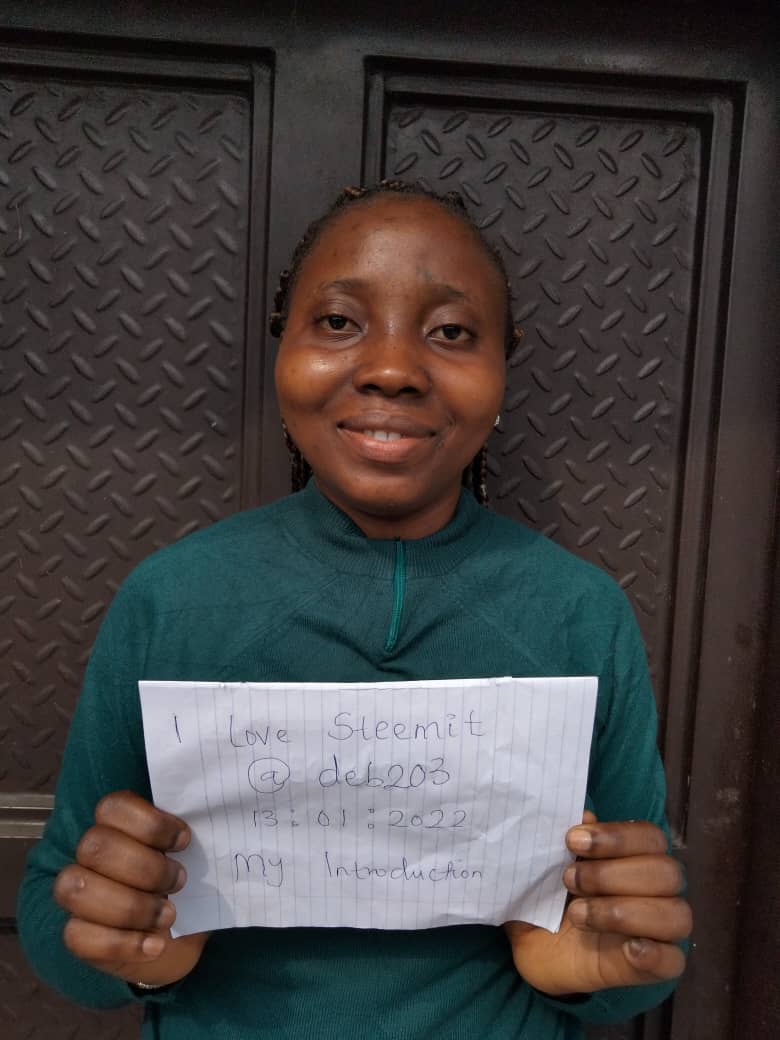 I Love Steemit
@ deb203
13:01:2022
My Introduction